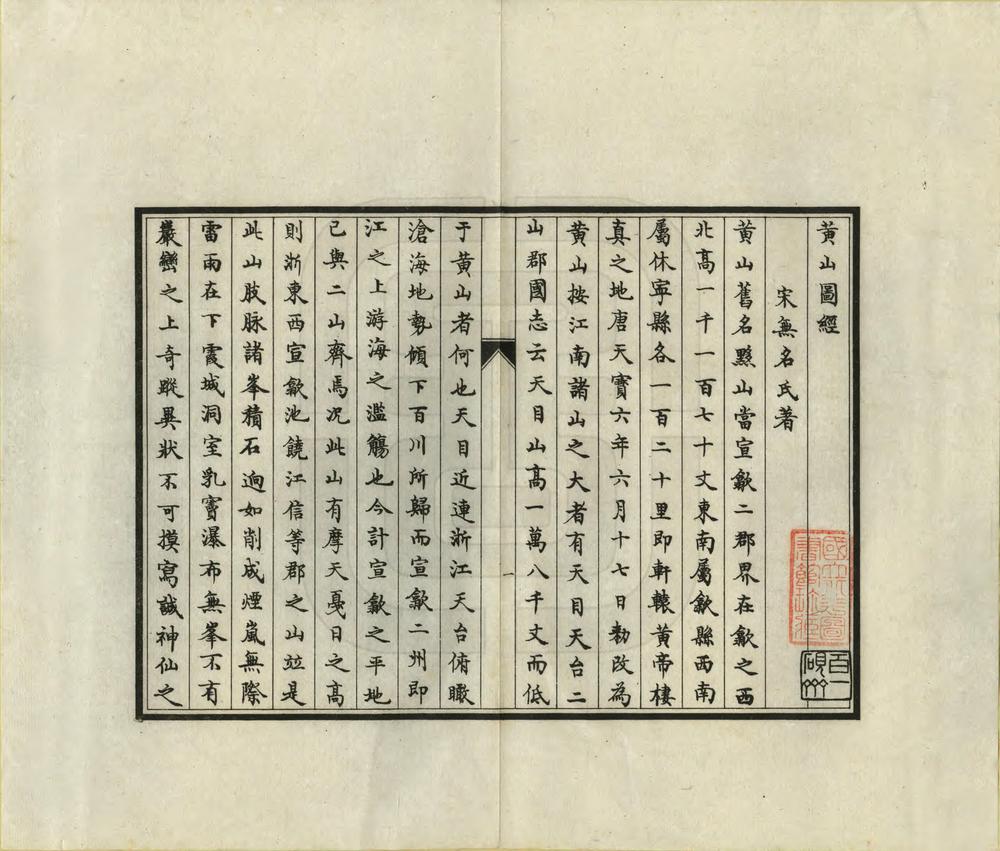 黃山圖經
宋無名氏著
黃山舊名黟山當宣歙二郡界在歙之西
北高一千一百七十丈東南屬歙縣西南
屬休寧縣各一百二十里即軒轅黃帝棲
真之地唐天寶六年六月十七日勑改為
黃山按江南諸山之大者有天目天台二
山郡國志云天目山高一萬八千丈而低
一
于黃山者何也天目近連浙江天台俯瞰
滄海地勢傾下百川所歸而宣歙二州即
江之上游海之濫觴也今計宣歙之平地
已與二山齊焉況此山有摩天戞日之高
則浙東西宣歙池饒江信等郡之山竝是
此山肢脉諸峯積石逈如削成煙嵐無際
雷雨在下霞城洞室乳竇瀑布無峯不有
巖巒之上奇蹤異狀不可摸寫誠神仙之
國立北平圖書館珍藏